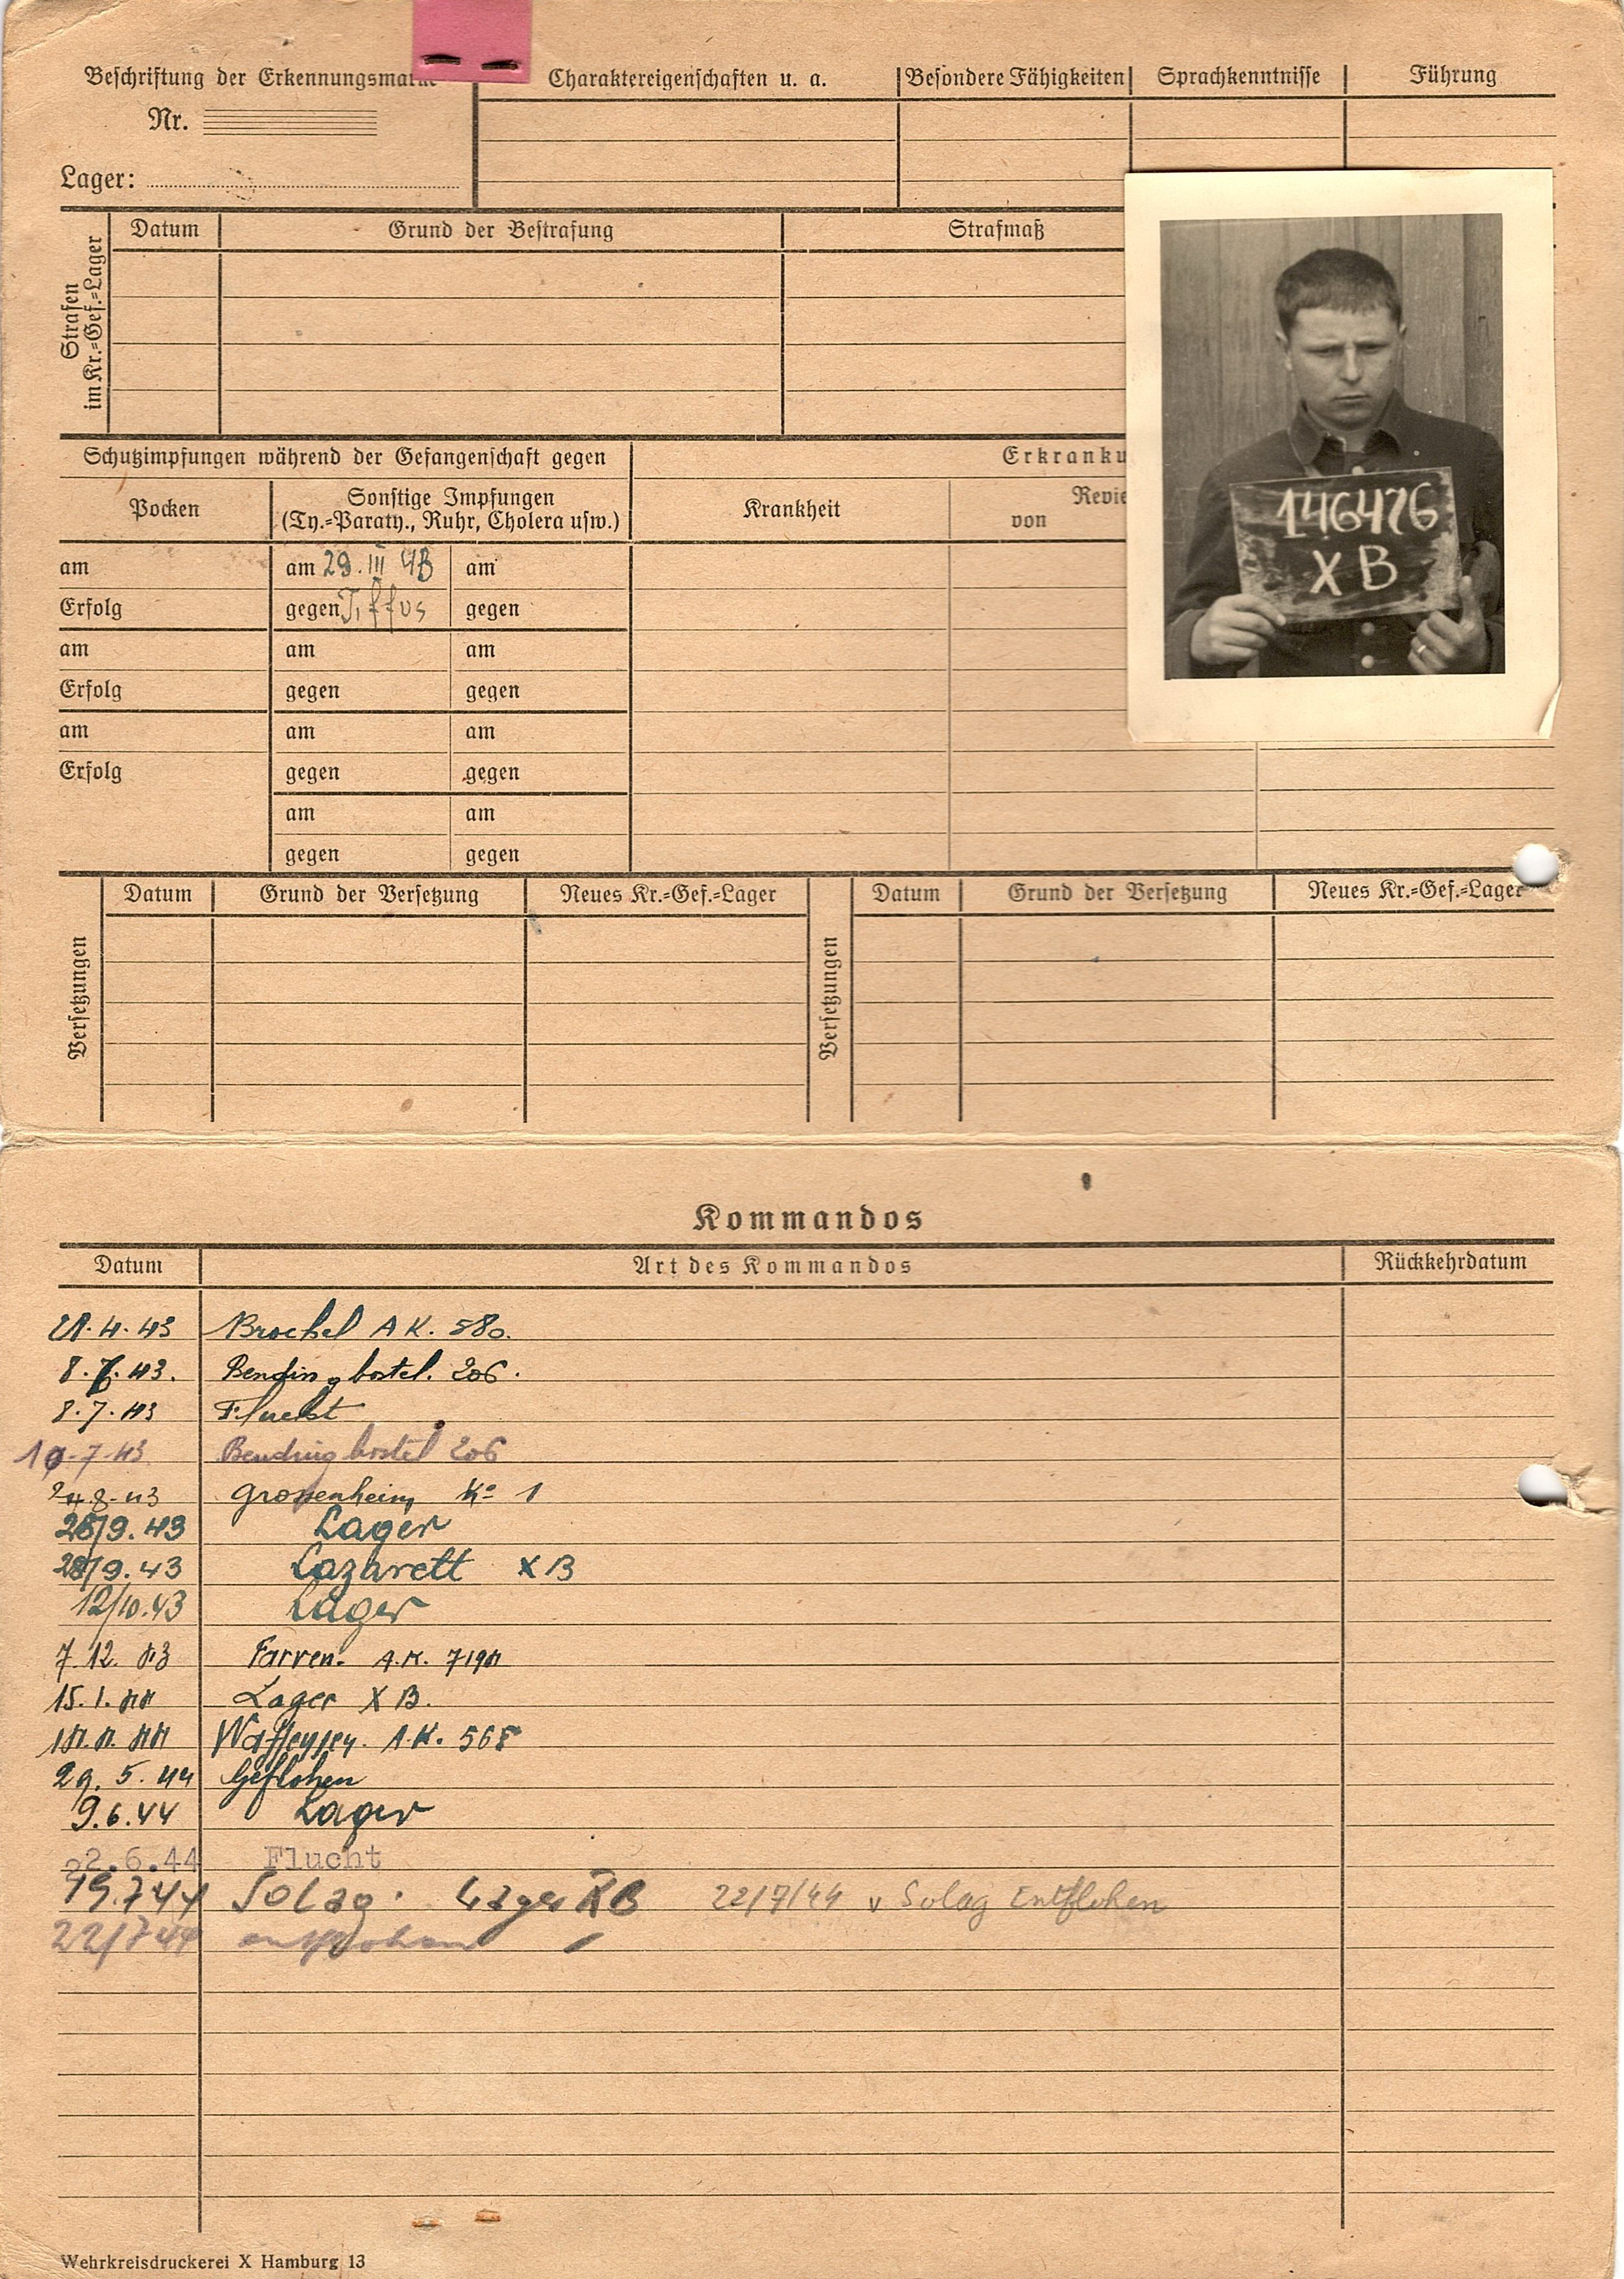 Beschriftung der Erkennungsmarke
Nr.
Lager:
Charaktereigenschaften u. a.
Besondere Fähigkeiten
Sprachkenntnisse
Führung
Strafen im Kr.=Gef.=Lager
Datum
Grund der Bestrafung
Strafmaß
146476
X B
Schutzimpfungen während der Gefangenschaft gegen
Erkranku
Pocken
Sonstige Impfungen
(Ty.=Paraty., Ruhr, Cholera usw.)
Krankheit
Revie
von
am am 29. III 43 am
Erfolg gegen Tiffus gegen
am am am
Erfolg gegen gegen
am am am
Erfolg gegen gegen
am am
gegen gegen
Versetzungen
Datum Grund der Versetzung Neues Kr.=Gef.=Lager
Versetzungen
Datum Grund der Versetzung Neues Kr.=Gef.=Lager
Kommandos
Datum Art des Kommandos Rückkehrdatum
21.4.43 Brockel A K. 580.
8.7.43. Bendingbostel. 206.
8.7.43 Flucht
10.7.43 Bendingbostel 206
24.8.43 Grossenheim Ko 1
28/9.43 Lager
28/9.43 Lazarett X B
12/10.43 Lager
7.12.43 Farven. A.K. 7194
15.1.44 Lager X B.
14.4.44 A.K. 568
29.5.44 Geflohen
9.6.44 Lager
22.6.44 Flucht
19.7 44 Solag. Lager X B 22/7/44 v Solag Entflohen
22/7 44 entflohen
Wehrkreisdruckerei X Hamburg 13